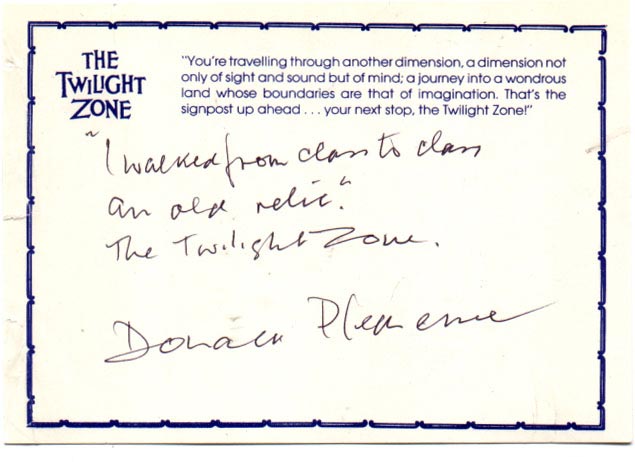 THE
TWILIGHT
ZONE
"You're travelling through another dimension, a dimension not
only of sight and sound but of mind; a journey into a wondrous
land whose boundaries are that of imagination. That's the
signpost up ahead . . . your next stop, the Twilight Zone!"
"I walked from class to class
an old relic."
The Twilight Zone.
Donald Pleasence